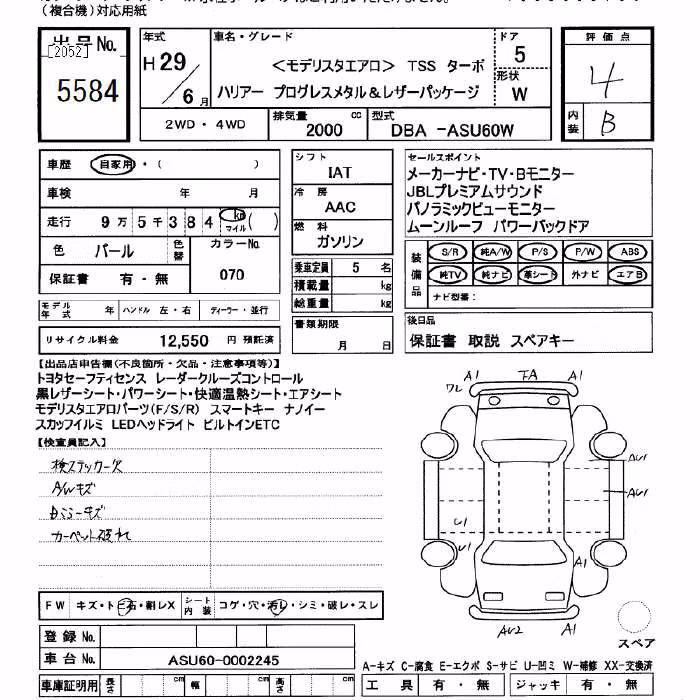 (複合機)対応用紙
出品No.
[2052]
5584
年式
H29/6月
車名・グレード
<モデリスタエアロ> TSS ターボ
ハリアー プログレスメタル&レザーパッケージ
ドア
5
形状
W
評価点
4
内装
B
2WD・4WD
排気量
2000 cc
型式
DBA -ASU60W
車歴 自家用・( )
車検 年 月
走行 9万5千384 km マイル( )
色 パール 色替
カラーNo.
070
保証書 有・無
モデル年式 年 ハンドル 左・右 ディーラー・並行
リサイクル料金 12,550 円 預託済
シフト
IAT
冷房
AAC
燃料
ガソリン
乗車定員 5 名
積載量 kg
総重量 kg
書類期限
月 日
セールスポイント
メーカーナビ・TV・Bモニター
JBLプレミアムサウンド
パノラミックビューモニター
ムーンルーフ パワーバックドア
装備品
S/R 純A/W P/S P/W ABS
純TV 純ナビ 革シート 外ナビ エアB
ナビ型番:
後日品
保証書 取説 スペアキー
【出品店申告欄(不良箇所・欠品・注意事項等)】
トヨタセーフティセンス レーダークルーズコントロール
黒レザーシート・パワーシート・快適温熱シート・エアシート
モデリスタエアロパーツ(F/S/R) スマートキー ナノイー
スカッフイルミ LEDヘッドライト ビルトインETC
【検査員記入】
検ステッカー欠
A/Wキズ
Dミラーキズ
カーペット破れ
A1 FA A1
ワレ
AU1
AU1
U1
U1
A1
AU2 A1
スペア
FW キズ・トビ石・割レX シート内装 コゲ・穴・汚レ・シミ・破レ・スレ
登録No.
車台No. ASU60-0002245
車庫証明用 長さ cm 幅 cm 高さ cm
A-キズ C-腐食 E-エクボ S-サビ U-凹ミ W-補修 XX-交換済
工具 有・無 ジャッキ 有・無